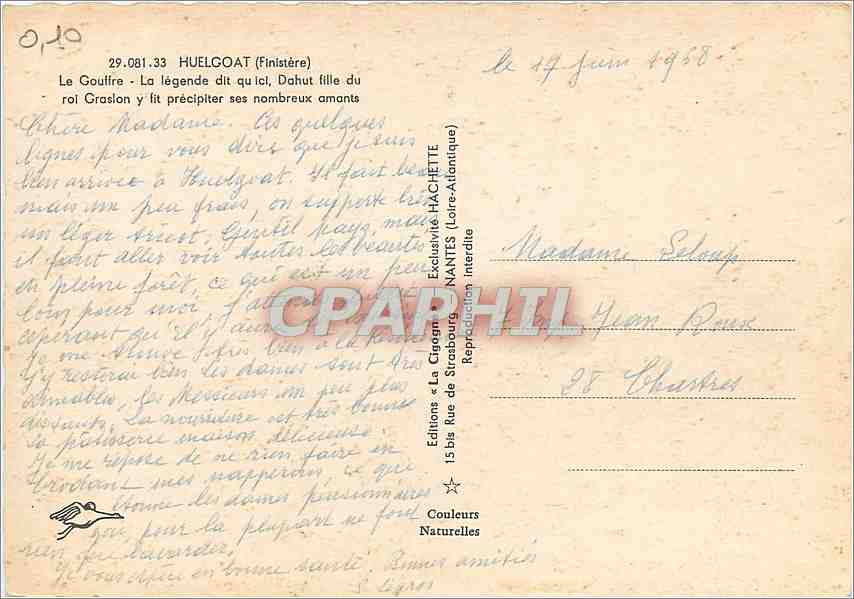 0,10
29.081.33 HUELGOAT (Finistère)
Le Gouffre - La légende dit qu'ici, Dahut fille du
roi Graslon y fit précipiter ses nombreux amants
le 17 Juin 1968
Chère Madame. Ces quelques
lignes pour vous dire que je suis
bien arrivée à Huelgoat. Il fait beau
mais un peu frais, on supporte bien
un léger tricot, Gentil pays, mais
il faut aller voir toutes les beautés
en pleine forêt, ce qui est un peu
loin pour moi, j'attends
esperant qu'il
Je me trouve très bien à la
J'y resterai bien les dames sont très
aimables, les Messieurs un peu plus
distants. La nourriture est très bonne
la patisserie maison délicieuse.
Je me repose de ne rien faire en
brodant mes napperons ce que
étonne les dames pensionnaires
qui pour la plupart ne font
rien que bavarder.
Je vous espère en bonne santé. Bonnes amitiés
S Legros
Editions « La Cigogne » Exclusivité HACHETTE
15 bis Rue de Strasbourg - NANTES (Loire-Atlantique)
Reproduction interdite
Couleurs
Naturelles
Madame Leloup
Jean Roux
28 Chartres
CPAPHIL